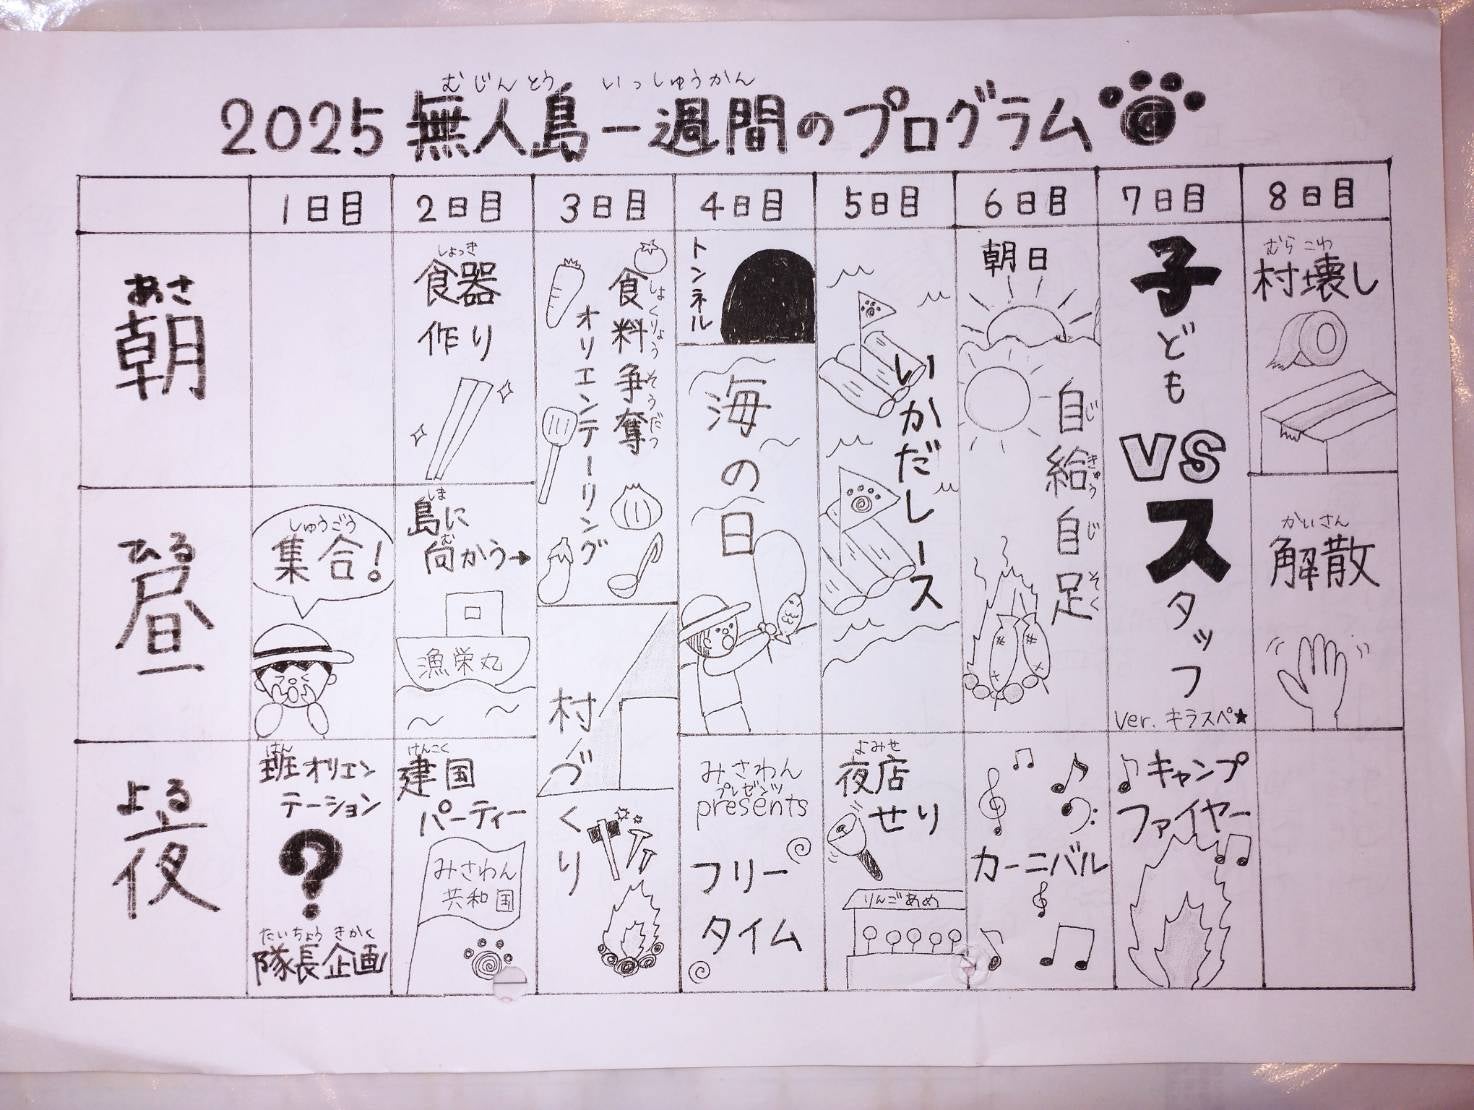 むじんとう いっしゅうかん
2025 無人島一週間のプログラム
1日目 2日目 3日目 4日目 5日目 6日目 7日目 8日目
あさ
朝
しょっき
食器
作り
しょくりょうそうだつ
食料争奪
オリエンテーリング
トンネル
海の日
いかだレース
朝日
じきゅうじそく
自給自足
子ども
VS
スタッフ
ver. キラスペ★
むら こわ
村壊し
ひる
昼
しゅうごう
集合!
しま
島に
む
向かう→
漁栄丸
村づくり
かいさん
解散
よる
夜
はん
班オリエン
テーション
?
たいちょう きかく
隊長企画
けんこく
建国
パーティー
みさわん
共和国
みさわん
プレゼンツ
presents
フリー
タイム
よみせ
夜店
せり
りんごあめ
カーニバル
キャンプ
ファイヤー